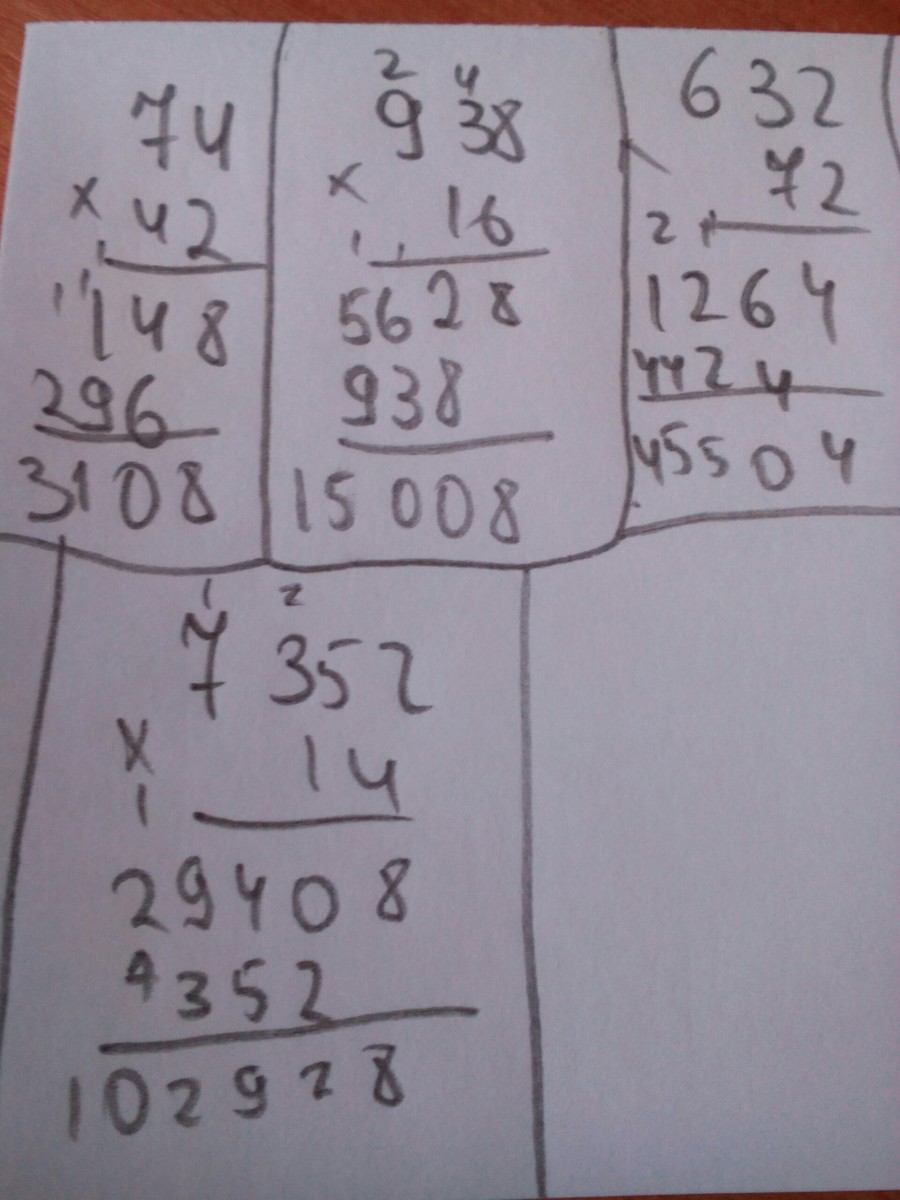 74
x 42
1
11
148
296
3108
2 4
938
x 16
1 1
5628
938
15008
632
72
2 1
1264
4424
45504
1 2
7352
x 14
1
29408
7352
102928